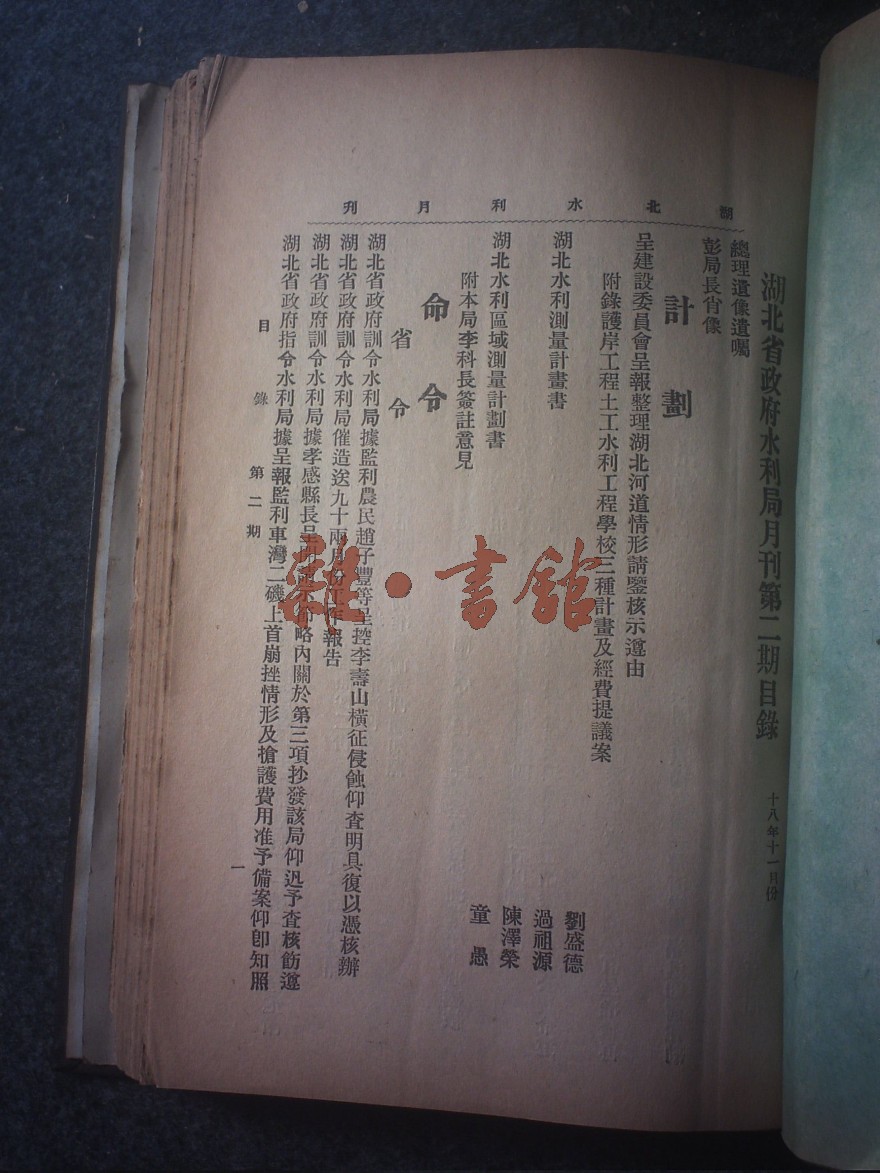 湖北水利月刊
湖北省政府水利局月刊第二期目錄
十八年十一月份
總理遺像遺囑
彭局長肖像
計劃
呈建設委員會呈報整理湖北河道情形請鑒核示遵由
附錄護岸工程土工水利工程學校三種計畫及經費提議案
湖北水利測量計畫書
劉盛德
過祖源
湖北水利區域測量計劃書
陳澤榮
附本局李科長簽註意見
童愚
命令
省令
湖北省政府訓令水利局據監利農民趙子豐等呈控李壽山橫征侵蝕仰查明具復以憑核辦
湖北省政府訓令水利局催造送九十兩月份工作報告
湖北省政府訓令水利局據孝感縣長呈略內關於第三項抄發該局仰迅予查核飭遵
湖北省政府指令水利局據呈報監利車灣二磯上首崩挫情形及搶護費用准予備案仰卽知照
目錄 第二期
一
雜·書館